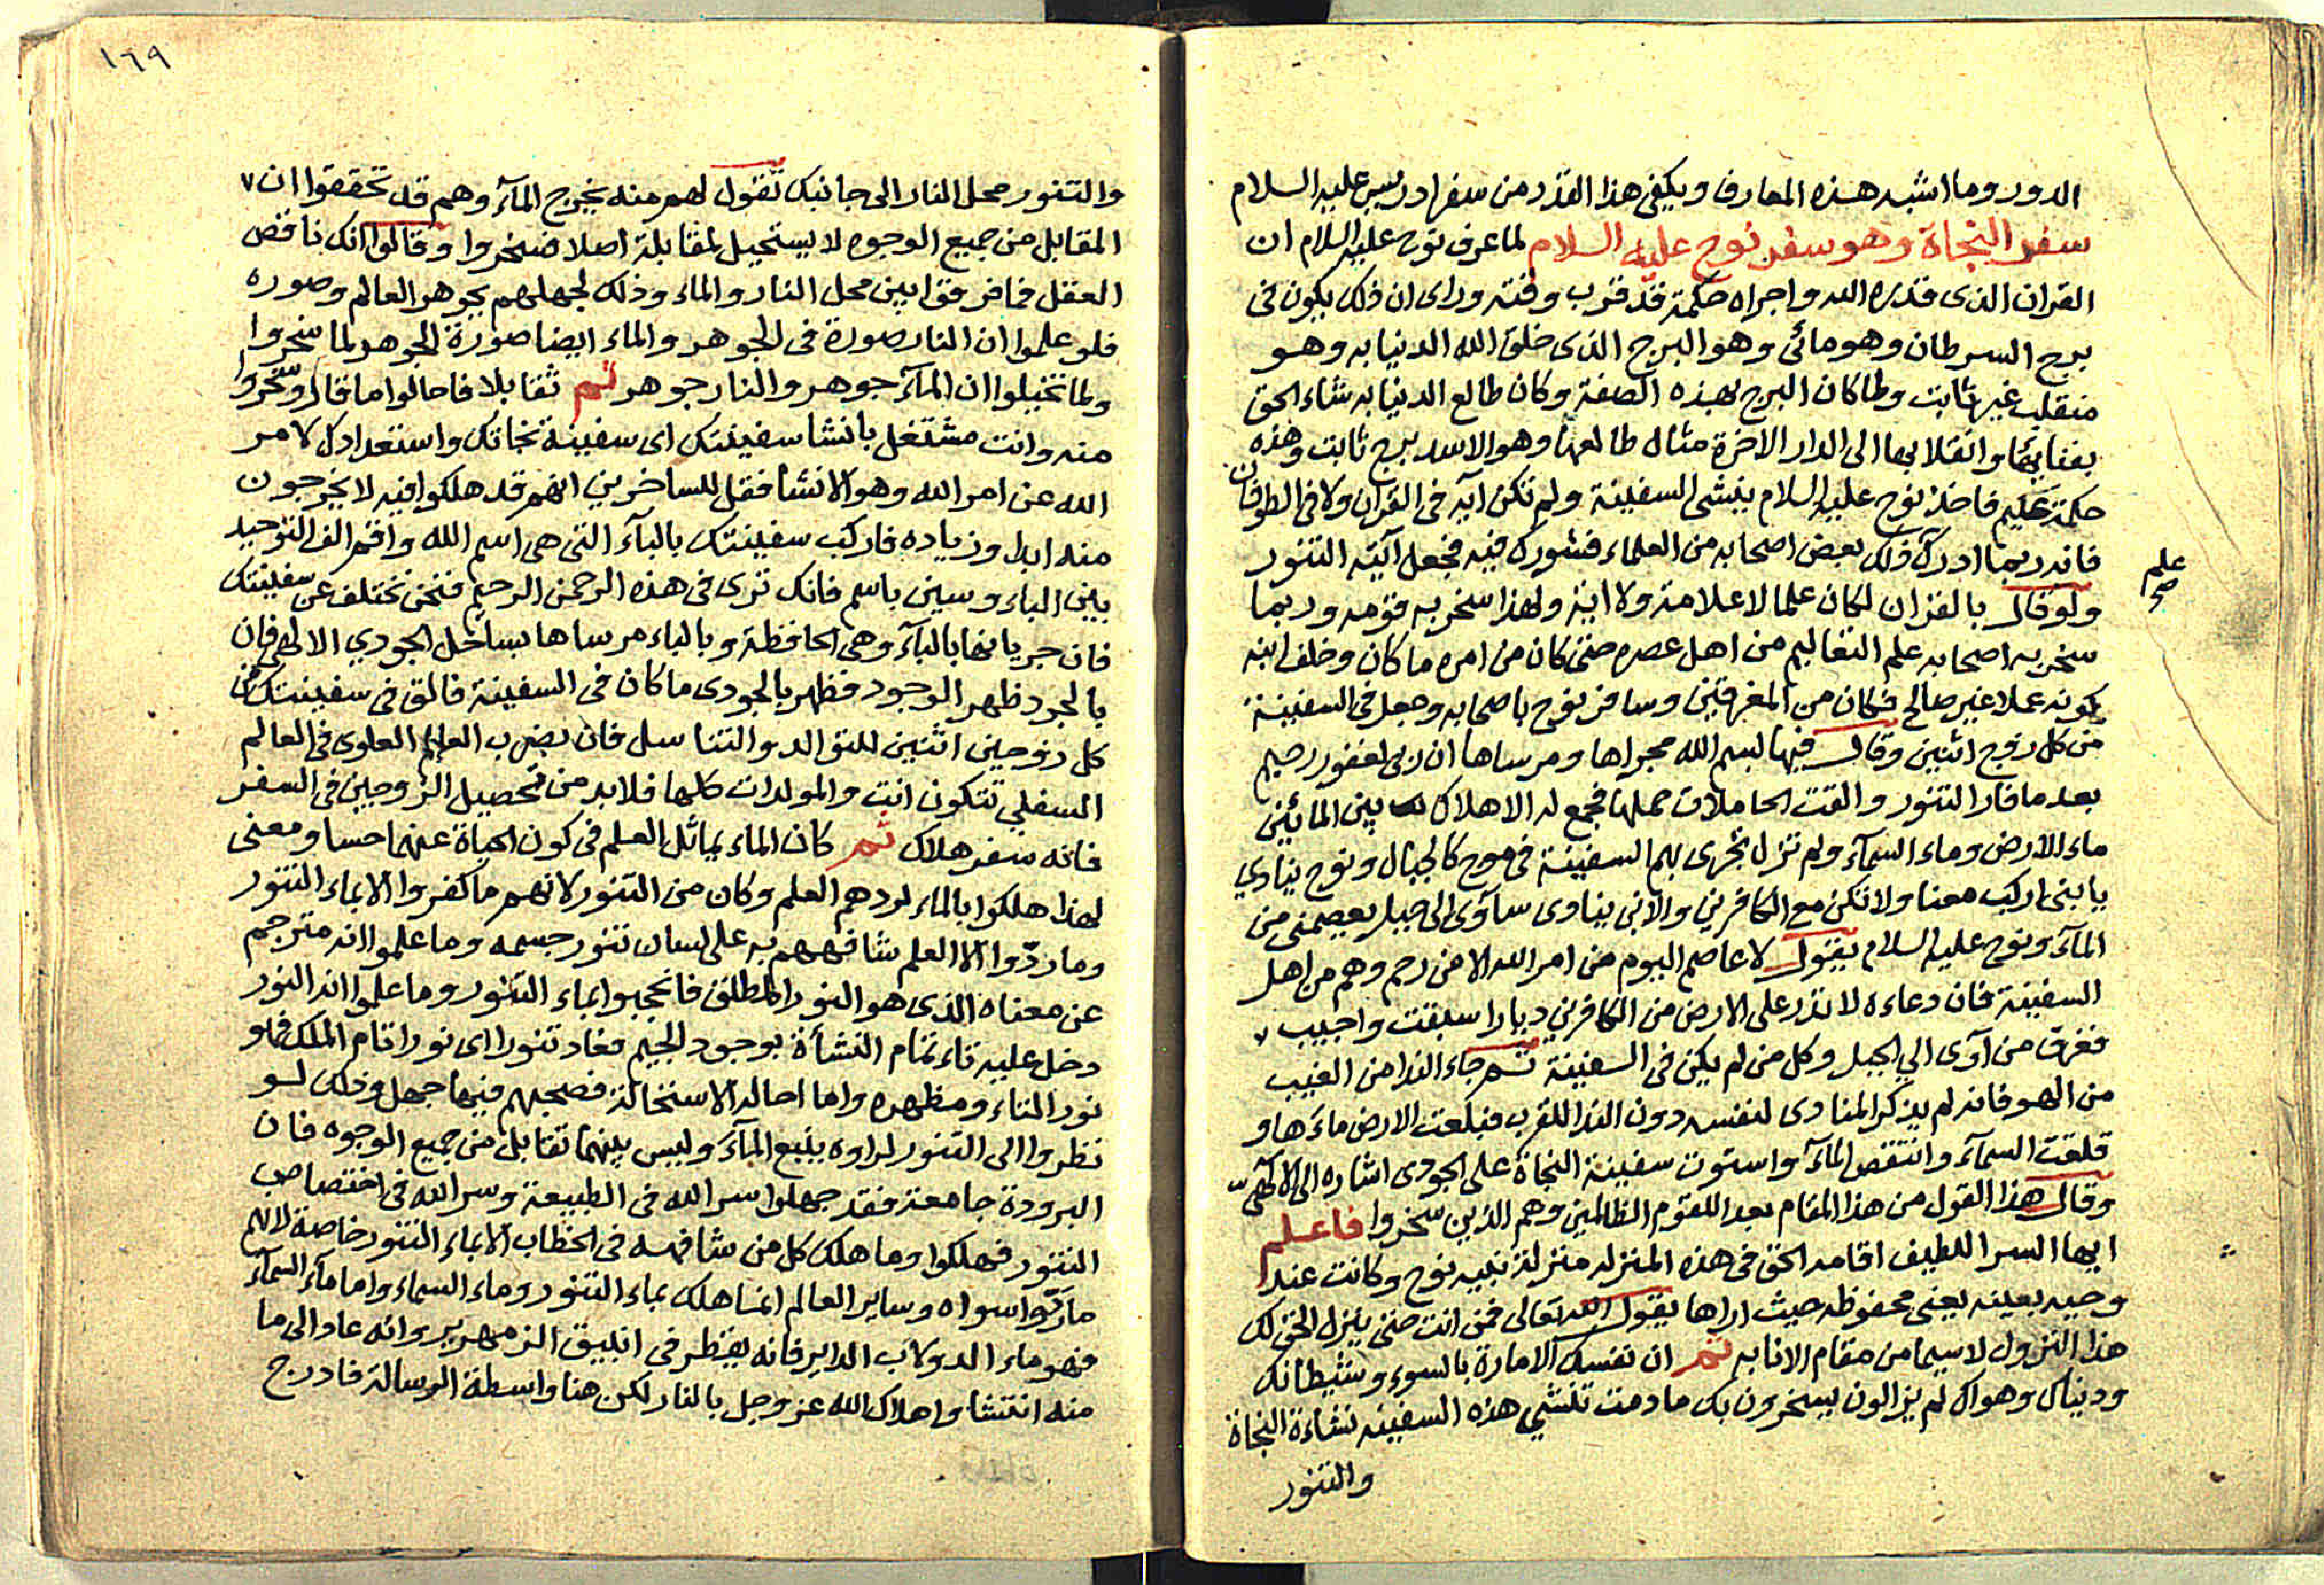 الدور وما اشبه هذه المعارف ويكفى هذا القدر من سفر ادريس عليه السلام
سفر النجاة وهو سفر نوح عليه السلام لما عرف نوح عليه السلام ان
القران الذى قدره الله واجراه حكمة قد قرب وقته وراى ان ذلك يكون فى
برج السرطان وهو مائى وهو البرج الذى خلق الله الدنيا به وهو
منقلب غير ثابت ولما كان البرج بهذه الصفة وكان طالع الدنيا به شاء الحق
بفنايها وانقلابها الى الدار الاخرة مثال طالعها وهو الاسد برج ثابت وهذه
حكمة عليم فاخذ نوح عليه السلام ينشى السفينة ولم تكن آيه فى القران ولا فى الطوفان
فانه ربما ادرك ذلك بعض اصحابه من العلماء فشورك فيه فجعل آيته التنور
علم
صح
ولو قال بالقران لكان علما لا علامة ولا اية ولهذا سخر به قومه وربما
سخر به اصحابه علم التعاليم من اهل عصره حتى كان من امره ما كان وخلف ابنه
بكونه عملا غير صالح فكان من المغرقين وسافر نوح باصحابه وجعل فى السفينة
من كل زوج اثنين وقال فيها بسم الله مجراها ومرساها ان ربى لغفور رحيم
بعد ما فار التنور والقت الحاملات حملها فجمع له الاهلاك بين المائين
ماء الارض وماء السمآء ولم تزل تجرى بهم السفينة فى موج كالجبال ونوح ينادي
يا بنى اركب معنا ولا تكن مع الكافرين والابن ينادى سآوى الى جبل يعصمنى من
المآء ونوح عليه السلام يقول لا عاصم اليوم من امر الله الا من رحم وهم من اهل
السفينة فان دعاءه لا تذر على الارض من الكافرين ديارا سبقت واجيب
فغرق من آوى الي الجبل وكل من لم يكن فى السفينة ثم جاء الندا من الغيب
من الهو فانه لم يذكر المنادى لنفسه دون الندا للقرب فبلعت الارض ماءها و
قلعت السمآء وانتقص المآء واستوت سفينة النجاة على الجودى اشاره الى الالهي
وقال هذا القول من هذا المقام بعدا للقوم الظالمين وهم الذين سخروا فاعلم
ايها السر اللطيف اقامه الحق فى هذه المنزله منزلة نبيه نوح وكانت عند
وحيه بعينه يعنى محفوظه حيث اراها يقول الله تعالى فمن انت حتى ينزل الحق لك
هذا النزول لا سيما من مقام الانابه ثم ان نفسك الامارة بالسوء وشيطانك
ودنياك وهواك لم يزالون يسخرون بك ما دمت تنشي هذه السفينه نشاءة النجاة
والتنور
١٦٩
والتنور محل النار الى جانبك تقول لهم منه يخرج المآء وهم قد تحققوا ان
المقابل من جميع الوجوه لا يستحيل لمقابلة اصلا فسخروا وقالوا انك ناقص
العقل فما فرقوا بين محل النار والماء وذلك لجهلهم بجوهر العالم وصوره
فلو علموا ان النار صورة فى الجوهر والماء ايضا صورة الجوهر لما سخروا
ولما تخيلوا ان المآء جوهر والنار جوهر ثم تقابلا فاحالوا ما قال وسخروا
منه وانت مشتغل بانشا سفينتك اى سفينة نجاتك واستعدادك لامر
الله عن امر الله وهو الانشا فقل للساخرين انهم قد هلكوا فيه لا يخرجون
منه ابدا وزياده فاركب سفينتك بالبآء التى هى اسم الله واقم الف التوحيد
بين الباء وسين باسم فانك ترى فى هذه الرحمن الرحيم فنحن نختلف عن سفينتك
فان جريانها بالبآء وهى الحافظة وبالباء مرساها بساحل الجودي الالهى فان
بالجود ظهر الوجود فظهر بالجودى ما كان فى السفينة فالق فى سفينتك من
كل زوجين اثنين للتوالد والتناسل فان بضرب العالم العلوى فى العالم
السفلي تتكون انت والمولدات كلها فلا بد من تحصيل الزوجين فى السفر
فانه سفر هلاك ثم كان الماء يماثل العلم فى كون الحياة عنهما حسا ومعنى
لهذا هلكوا بالماء لردهم العلم وكان من التنور لانهم ما كفروا الا بماء التنور
وما ردّوا الا العلم شافههم به على لسان تنور جسمه وما علموا انه مترجم
عن معناه الذى هو النور المطلق فانحجبوا بماء التنور وما علموا انه النور
دخل عليه تاء تمام النشأة بوجود الجيم فعاد تنورا اى نورا تام الملك فهو
نور الماء ومظهره واما احاله الاستحالة فصحبهم فيها جهل وذلك لو
نظروا الى التنور لراوه ينبع المآء وليس بينهما تقابل من جميع الوجوه فان
البرودة جامعة فقد جهلوا سر الله فى الطبيعة وسر الله فى اختصاص
التنور فهلكوا وما هلك كل من شافهه فى الخطاب الا بماء التنور خاصة لانهم
ما ردّوا سواه وساير العالم انما هلك بماء التنور وماء السماء واما مآء السمآء
فهو ماء الدولاب الداير فانه يقطر فى انبيق الزمهرير وانه عاد الى ما
منه انتشا واهلاك الله عز وجل بالنار لكن هنا واسطة الرسالة فادرج